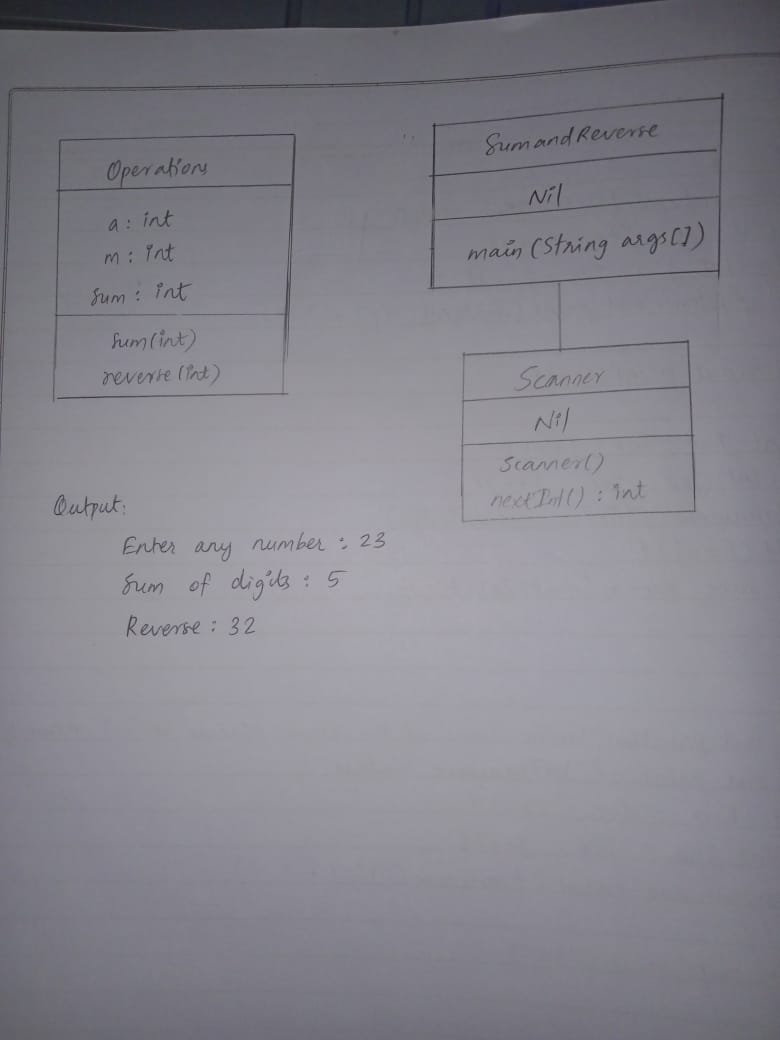 Operations
a : int
m : int
sum : int
sum(int)
reverse(int)
SumandReverse
Nil
main(String args[])
Scanner
Nil
Scanner()
nextInt() : int
Output:
Enter any number : 23
Sum of digits : 5
Reverse : 32